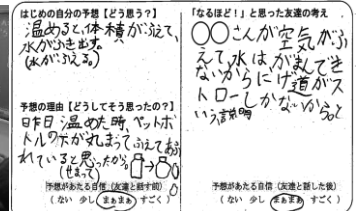 はじめの自分の予想【どう思う？】
温めると、体積がふえて、
水がふき出す。
(水がふえる。)
予想の理由【どうしてそう思ったの？】
昨日温めた時、ペットボ
トルの
れていると思ったから。
予想があたる自信（友達と話す前）
（ ない 少し まぁまぁ すごく ）
「なるほど！」と思った友達の考え
〇〇さんが空気がふ
えて、水はがまんでき
ないからにげ道がス
トローしかないから。と
いう説明
予想があたる自信（友達と話した後）
（ ない 少し まぁまぁ すごく ）